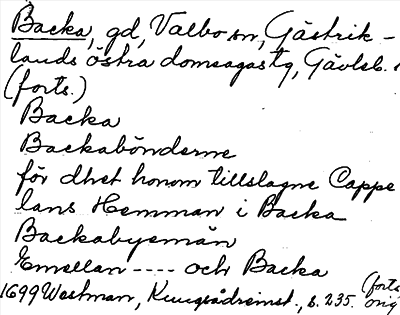 Backa, gd, Valbo sn, Gästrik-
lands östra domsagas tg, Gävleb. l
(forts.)
Backa
Backabönderne
för dhet honom tillslagne Cappe
lans Hemman i Backa
Backabyemän
Emellan ---- och Backa
(forts
1699 Westman, Kungsådreinst., s. 235. orig